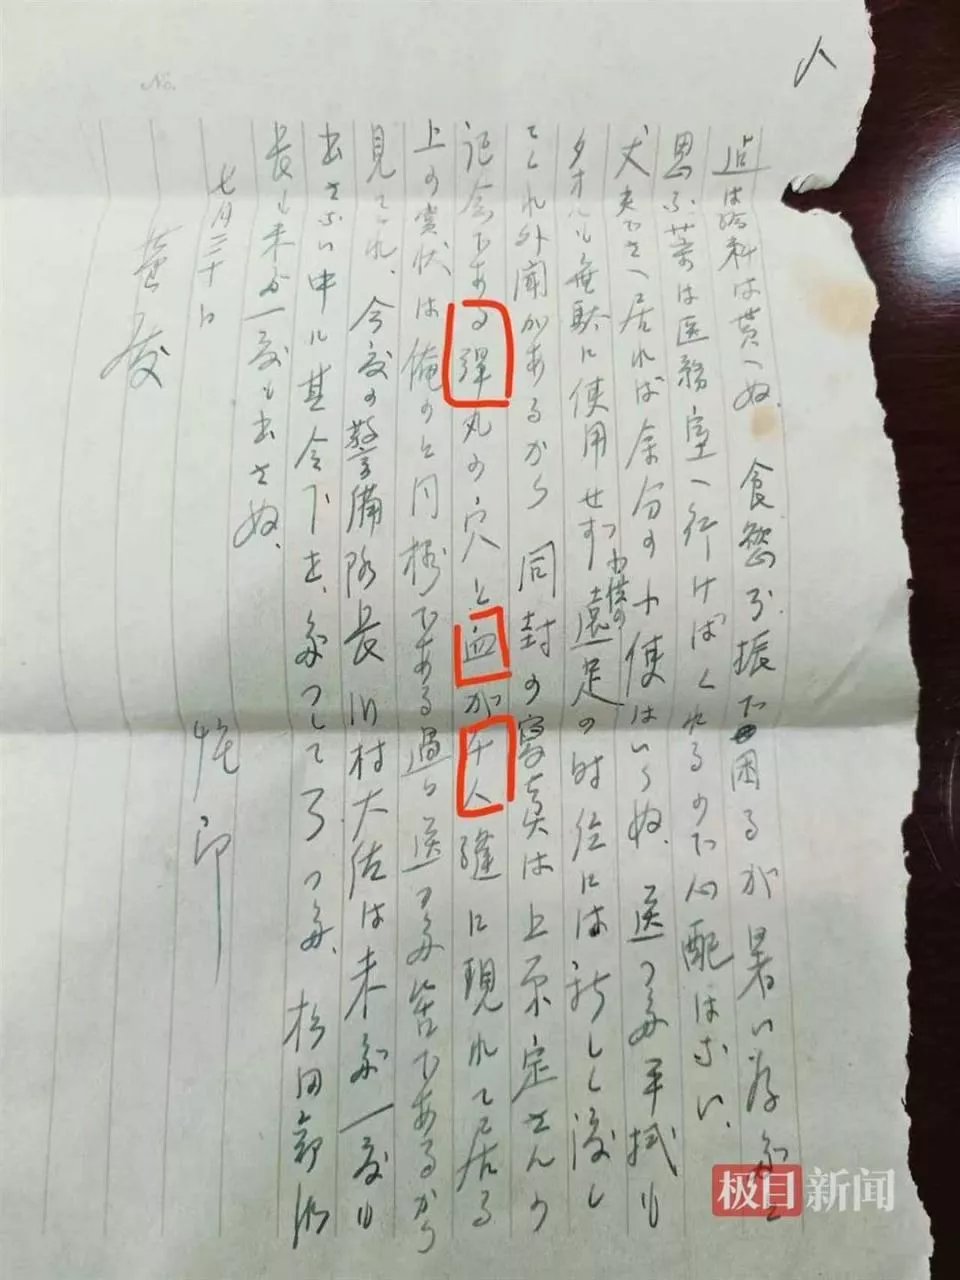 八
No.
迄は給料は貰へぬ、食慾が振はず困るが暑い為だと
思ふ薬は医務室へ行けばくれるので心配はない、
丈夫でさへ居れば余分の小使はいらぬ、送つた手拭も
タオルも無駄に使用せず子供の遠足の時位には新しく渡し
てくれ外聞があるから 同封の写真は上原定さんの
記念である弾丸の穴と血が千人縫に現れて居る
上の賞状は俺のと同様である過日送つた筈であるから
見てくれ、今度の警備隊長川村大佐は未だ一度も
出さない中に其令下士、なつて了つた、松田部派
長も未だ一度も出さぬ、
七月三十日
極目新闻